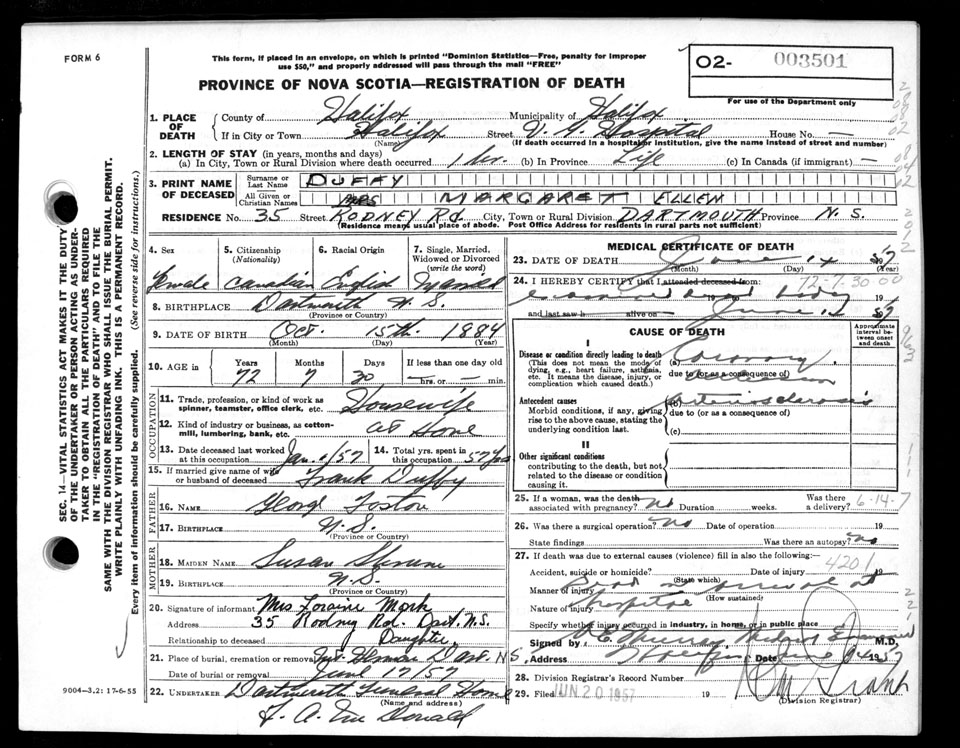 FORM 6
This form, if placed in an envelope, on which is printed "Dominion Statistics—Free, penalty for improper
use $50," and properly addressed will pass through the mail "FREE"
PROVINCE OF NOVA SCOTIA—REGISTRATION OF DEATH
O2- 003501
For use of the Department only
1. PLACE OF DEATH
County of Halifax Municipality of Halifax
If in City or Town Halifax Street V. G. Hospital House No. —
(Name) (If death occurred in a hospital or institution, give the name instead of street and number)
2. LENGTH OF STAY (in years, months and days)
(a) In City, Town or Rural Division where death occurred 1 hr. (b) In Province Life (c) In Canada (if immigrant) —
3. PRINT NAME OF DECEASED
Surname or Last Name DUFFY
All Given or Christian Names MRS MARGARET ELLEN
RESIDENCE No. 35 Street RODNEY Rd. City, Town or Rural Division DARTMOUTH Province N. S.
(Residence means usual place of abode. Post Office Address for residents in rural parts not sufficient)
4. Sex Female
5. Citizenship (Nationality) Canadian
6. Racial Origin English
7. Single, Married, Widowed or Divorced (write the word) Married
8. BIRTHPLACE Dartmouth N. S.
(Province or Country)
9. DATE OF BIRTH Oct. 15th. 1884
(Month) (Day) (Year)
10. AGE in Years Months Days If less than one day old
72 7 30 — hrs. or — min.
OCCUPATION
11. Trade, profession, or kind of work as spinner, teamster, office clerk, etc. Housewife
12. Kind of industry or business, as cotton-mill, lumbering, bank, etc. At Home
13. Date deceased last worked at this occupation Jan. 1/57
14. Total yrs. spent in this occupation 57 yrs
15. If married give name of wife or husband of deceased Frank Duffy
FATHER
16. NAME George
17. BIRTHPLACE N. S.
(Province or Country)
MOTHER
18. MAIDEN NAME Susan
19. BIRTHPLACE N. S.
(Province or Country)
20. Signature of informant Mrs Loraine
Address 35 Rodney Rd. Dart. N.S.
Relationship to deceased Daughter
21. Place of burial, cremation or removal Mt. Hermon Dart. N S.
Date of burial or removal June 17/57
22. UNDERTAKER Dartmouth Funeral Home
(Name and address)
F. A. Mc Donald
MEDICAL CERTIFICATE OF DEATH
23. DATE OF DEATH June 14 57
(Month) (Day) (Year)
24. I HEREBY CERTIFY that I attended deceased from: 72-7-30 00
examined dead body 19
and last saw h alive on June 14 57
CAUSE OF DEATH
Approximate interval between onset and death
I
Disease or condition directly leading to death
(This does not mean the mode of dying, e.g., heart failure, asthenia, etc. It means the disease, injury, or complication which caused death.)
(a) Coronary
due to (or as a consequence of)
Antecedent causes
Morbid conditions, if any, giving rise to the above cause, stating the underlying condition last.
(b) Arteriosclerosis
due to (or as a consequence of)
(c)
II
Other significant conditions
contributing to the death, but not related to the disease or condition causing it.
25. If a woman, was the death associated with pregnancy? No Duration weeks. Was there a delivery? 6-14-7
26. Was there a surgical operation? No Date of operation 19
State findings Was there an autopsy? No
27. If death was due to external causes (violence) fill in also the following:—
Accident, suicide or homicide? Date of injury 4201 19
(State which)
Manner of injury Dead on arrival at
(How sustained)
Nature of injury Hospital
Specify whether injury occurred in industry, in home, or in public place
Signed by Murray Medical Examiner M.D.
Address Halifax Date 1957
28. Division Registrar's Record Number
29. Filed JUN 20 1957 19
(Division Registrar)
SEC. 14—VITAL STATISTICS ACT MAKES IT THE DUTY
OF THE UNDERTAKER OR PERSON ACTING AS UNDER-
TAKER TO OBTAIN ALL THE PARTICULARS REQUIRED
IN THE "REGISTRATION OF DEATH" AND TO FILE THE
SAME WITH THE DIVISION REGISTRAR WHO SHALL ISSUE THE BURIAL PERMIT.
WRITE PLAINLY WITH UNFADING INK. THIS IS A PERMANENT RECORD.
Every item of information should be carefully supplied. (See reverse side for instructions.)
9004-3.2: 17-6-55